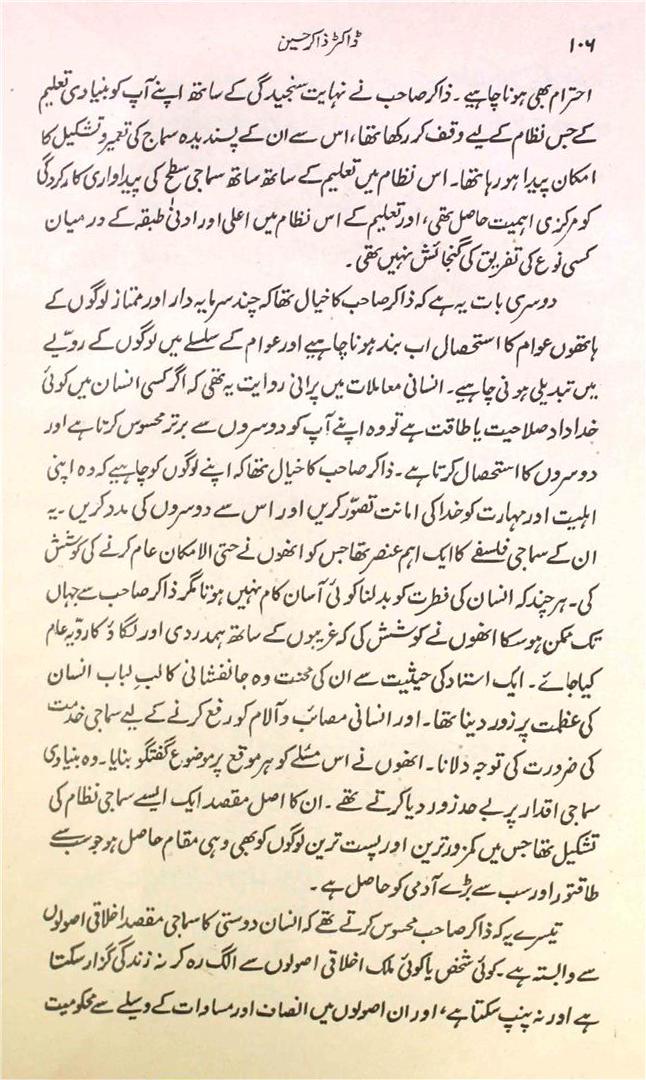 ۱۰۶ ڈاکٹر ذاکر حسین
احترام بھی ہونا چاہیے۔ ذاکر صاحب نے نہایت سنجیدگی کے ساتھ اپنے آپ کو بنیادی تعلیم
کے جس نظام کے لیے وقف کر رکھا تھا، اس سے ان کے پسندیدہ سماج کی تعمیر و تشکیل کا
امکان پیدا ہو رہا تھا۔ اس نظام میں تعلیم کے ساتھ ساتھ سماجی سطح کی پیداواری کارکردگی
کو مرکزی اہمیت حاصل تھی، اور تعلیم کے اس نظام میں اعلی اور ادنیٰ طبقہ کے درمیان
کسی نوع کی تفریق کی گنجائش نہیں تھی۔
دوسری بات یہ ہے کہ ذاکر صاحب کا خیال تھا کہ چند سرمایہ دار اور ممتاز لوگوں کے
ہاتھوں عوام کا استحصال اب بند ہونا چاہیے اور عوام کے سلسلے میں لوگوں کے رویّے
میں تبدیلی ہونی چاہیے۔ انسانی معاملات میں پرانی روایت یہ تھی کہ اگر کسی انسان میں کوئی
خداداد صلاحیت یا طاقت ہے تو وہ اپنے آپ کو دوسروں سے برتر محسوس کرتا ہے اور
دوسروں کا استحصال کرتا ہے۔ ذاکر صاحب کا خیال تھا کہ اپنے لوگوں کو چاہیے کہ وہ اپنی
اہلیت اور مہارت کو خدا کی امانت تصوّر کریں اور اس سے دوسروں کی مدد کریں۔ یہ
ان کے سماجی فلسفے کا ایک اہم عنصر تھا جس کو انھوں نے حتی الامکان عام کرنے کی کوشش
کی۔ ہر چند کہ انسان کی فطرت کو بدلنا کوئی آسان کام نہیں ہوتا مگر ذاکر صاحب سے جہاں
تک ممکن ہو سکا انھوں نے کوشش کی کہ غریبوں کے ساتھ ہمدردی اور لگاؤ کا رویّہ عام
کیا جائے۔ ایک استاد کی حیثیت سے ان کی محنت وہ جانفشانی کا لبِ لباب انسان
کی عظمت پر زور دینا تھا۔ اور انسانی مصائب و آلام کو رفع کرنے کے لیے سماجی خدمت
کی ضرورت کی توجہ دلانا۔ انھوں نے اس مسئلے کو ہر موقع پر موضوع گفتگو بنایا۔ وہ بنیادی
سماجی اقدار پر بے حد زور دیا کرتے تھے۔ ان کا اصل مقصد ایک ایسے سماجی نظام کی
تشکیل تھا جس میں کمزور ترین اور پست ترین لوگوں کو بھی وہی مقام حاصل ہو جو سب سے
طاقتور اور سب سے بڑے آدمی کو حاصل ہے۔
تیسرے یہ کہ ذاکر صاحب محسوس کرتے تھے کہ انسان دوستی کا سماجی مقصد اخلاقی اصولوں
سے وابستہ ہے۔ کوئی شخص یا کوئی ملک اخلاقی اصولوں سے الگ رہ کر نہ زندگی گزار سکتا
ہے اور نہ پنپ سکتا ہے، اور ان اصولوں میں انصاف اور مساوات کے وسیلے سے محکومیت